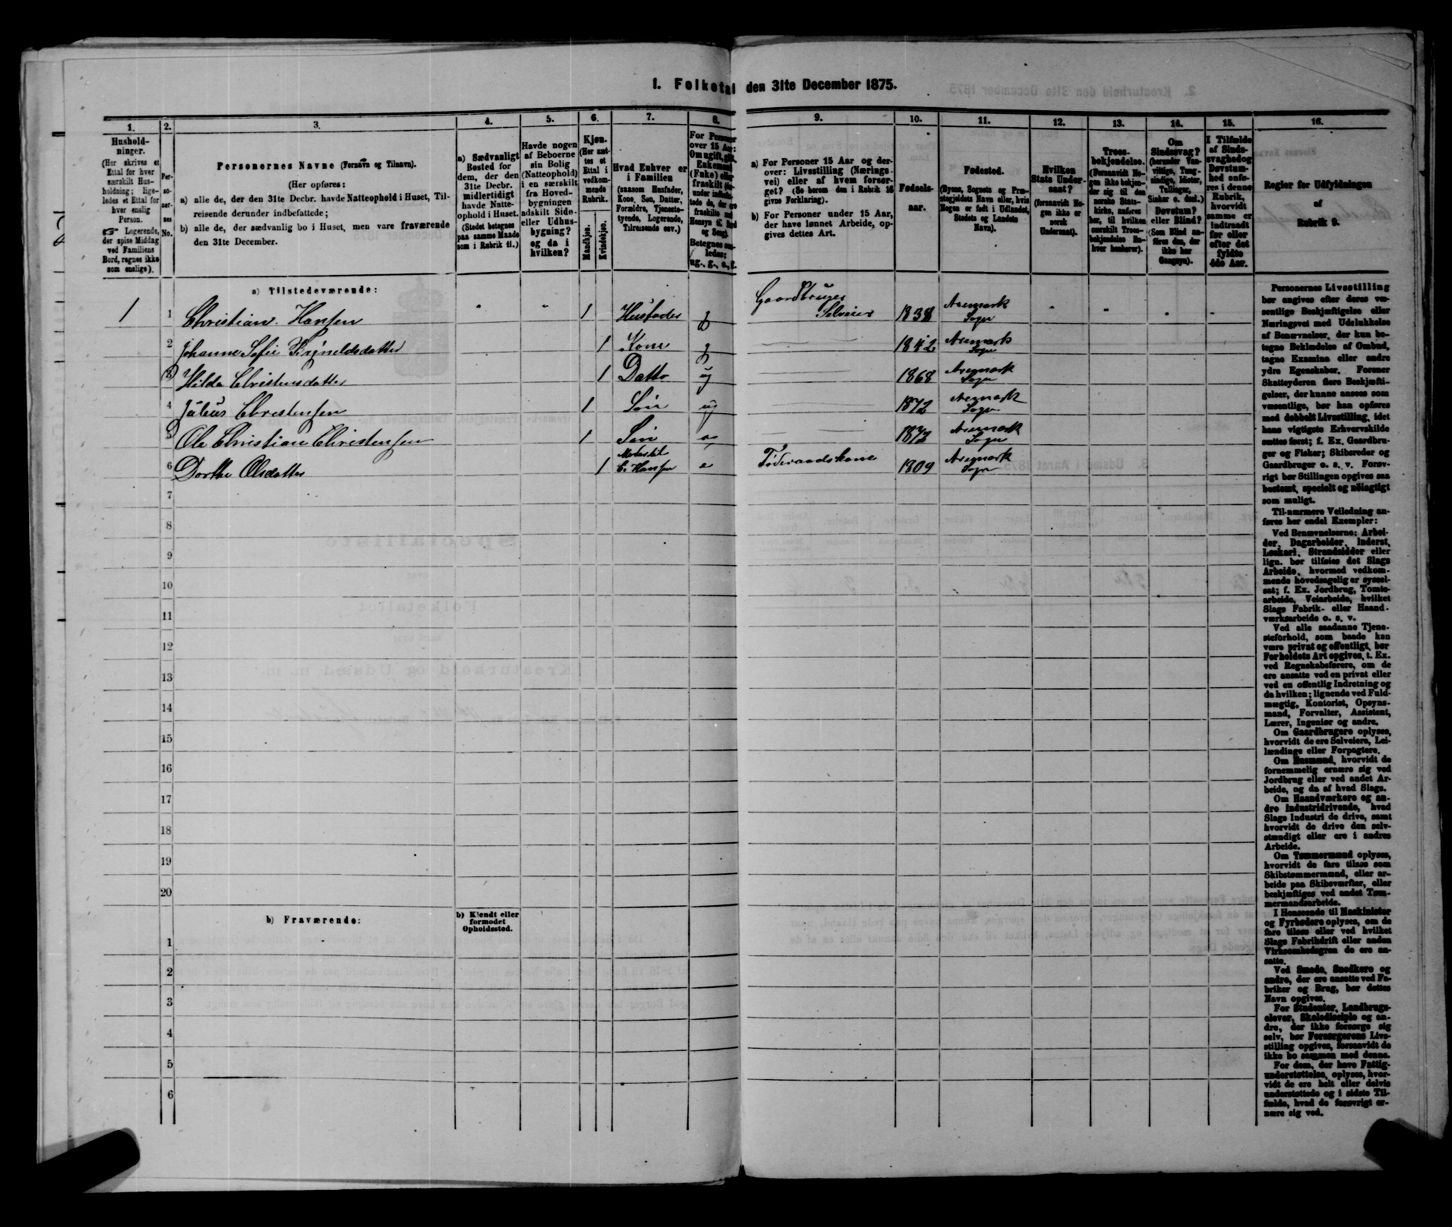 1. Folketal den 31te December 1875.
1. 2. 3. 4. 5. 6. 7. 8. 9. 10. 11. 12. 13. 14. 15. 16.
Hushold-
ninger.
(Her skrives et
Ettal for hver
særskilt Hus-
holdning; lige-
ledes et Ettal for
hver enslig
Person.
☞ Logerende,
der spise Middag
ved Familiens
Bord, regnes ikke
som enslige).
Per-
so-
ner-
nes
No.
Personernes Navne (Fornavn og Tilnavn).
(Her opføres:
a) alle de, der den 31te Decbr. havde Natteophold i Huset, Til-
reisende derunder indbefattede;
b) alle de, der sædvanlig bo i Huset, men vare fraværende
den 31te December.
a) Sædvanligt
Bosted for
dem, der den
31te Decbr.
midlertidigt
havde Natte-
ophold i Huset.
(Stedet betegnes
paa samme Maade
som i Rubrik 11.)
Havde nogen
af Beboerne
sin Bolig
(Natteophold)
i en særskilt
fra Hoved-
bygningen
adskilt Side-
eller Udhus-
bygning?
og da i
hvilken?
Kjøn.
(Her sæt-
tes et
Ettal i
vedkom-
mende
Rubrik.
Mandkjøn.
Kvindekjøn.
Hvad Enhver er
i Familien
(saasom Husfader,
Kone, Søn, Datter,
Forældre, Tjeneste-
tyende, Logerende,
Tilreisende osv.)
For Personer
over 15 Aar:
Om ugift, gift,
Enkemand
(Enke) eller
fraskilt
Betegnes saa-
ledes:
ug., g., e., f.
a) For Personer 15 Aar og der-
over: Livsstilling (Nærings-
vei) eller af hvem forsør-
get? (Se herom den i Rubrik 16
givne Forklaring).
b) For Personer under 15 Aar,
der have lønnet Arbeide, op-
gives dettes Art.
Fødsels-
aar.
Fødested.
(Byens, Sognets og Præ-
stegjeldets Navn eller, hvis
Nogen er født i Udlandet,
Stedets og Landets
Navn).
Hvilken
Stats Under-
saat?
(forsaavidt No-
gen ikke er
norsk
Undersaat).
Troes-
bekjendelse.
(Forsaavidt No-
gen ikke bekjen-
der sig til den
norske Stats-
kirke, anføres
her, til hvilken
særskilt Troes-
bekjendelse En-
hver henhører).
Om
Sindssvag?
(herunder Van-
vittige, Tung-
sindige, Idioter,
Tullinger,
Sinker o. desl.)
Døvstum?
eller Blind?
(Som Blind an-
føres den, der
ikke har
Gangsyn).
I Tilfælde
af Sinds-
svaghed og
Døvstum-
hed anfø-
res i denne
Rubrik,
hvorvidt
samme er
indtraadt
før eller
efter det
fyldte
4de Aar.
Regler for Udfyldningen
af
Rubrik 9.
a) Tilstedeværende:
1 1 Christian Hansen 1 Husfader g Gaardbruger Selveier 1838 Aremark Sogn
2 Johanne Sofie 1 Kone g 1842 Aremark Sogn
3 Hilda Christensdatter 1 Datter ug 1868 Aremark Sogn
4 Julius Christensen 1 Søn ug 1872 Aremark Sogn
5 Ole Christian Christensen 1 Søn Aremark Sogn
6 Dorthe Olsdatter 1 Moder til C. Hansen e Føderaadskone 1809 Aremark Sogn
7
8
9
10
11
12
13
14
15
16
17
18
19
20
b) Fraværende:
b) Kjendt eller
formodet
Opholdssted.
1
2
3
4
5
6
Personernes Livsstilling
bør angives efter deres væ-
sentlige Beskjæftigelse eller
Næringsvei med Udelukkelse
af Benævnelser, der kun be-
tegne Beklædelse af Ombud,
tagne Examina eller andre
ydre Egenskaber. Forener
Skatteyderen flere Beskjæfti-
gelser, der kunne ansees som
væsentlige, bør han opføres
med dobbelt Livsstilling, idet
hans vigtigste Erhvervskilde
sættes først; f. Ex. Gaardbru-
ger og Fisker; Skibsreder og
Gaardbruger o. s. v. Forøv-
rigt bør Stillingen opgives saa
bestemt, specielt og nøiagtigt
som muligt.
Til nærmere Veiledning an-
føres her endel Exempler:
Ved Benævnelserne: Arbei-
der, Dagarbeider, Inderst,
Løskarl, Strandsidder eller
lign. bør tilføies det Slags
Arbeide, hvormed vedkom-
mende hovedsagelig er syssel-
sat; f. Ex. Jordbrug, Tomte-
arbeide, Veiarbeide, hvilket
Slags Fabrik- eller Haand-
værksarbeide o. s. v.
Ved alle saadanne Tjene-
steforhold, som baade kan
være privat og offentligt, bør
Forholdets Art opgives, t. Ex.
ved Regnskabsførere, om de
ere ansatte ved en privat eller
ved en offentlig Indretning og
da hvilken; lignende ved Fuld-
mægtig, Kontorist, Opsyns-
mand, Forvalter, Assistent,
Lærer, Ingeniør og andre.
Om Gaardbrugere oplyses,
hvorvidt de ere Selveiere, Lei-
lændinge eller Forpagtere.
Om Husmænd, hvorvidt de
fornemmelig ernære sig ved
Jordbrug eller ved andet Ar-
beide, og da af hvad Slags.
Om Haandværkere og an-
dre Industridrivende, hvad
Slags Industri de drive, samt
hvorvidt de drive den selv-
stændigt eller ere i andres
Arbeide.
Om Tømmermænd oplyses,
hvorvidt de fare tilsøs som
Skibstømmermænd, eller ar-
beide paa Skibsværfter, eller
beskjæftiges ved andet Tøm-
mermandsarbeide.
I Henseende til Maskinister
og Fyrbødere oplyses, om de
fare tilsøs eller ved hvilket
Slags Fabrikdrift eller anden
Virksomhedsgren de ere an-
satte.
Ved Smede, Snedkere og
andre, der ere ansatte ved Fa-
briker og Brug, bør dettes
Navn opgives.
For Studenter, Landbrugs-
elever, Skoledisciple og an-
dre, der ikke forsørge sig
selv, bør Forsørgerens Livs-
stilling opgives, forsaavidt de
ikke bo sammen med denne.
For dem, der have Fattig-
understøttelse, oplyses, hvor-
vidt de ere helt eller delvis
understøttede og i sidste Til-
fælde, hvad de forøvrigt er-
nære sig ved.